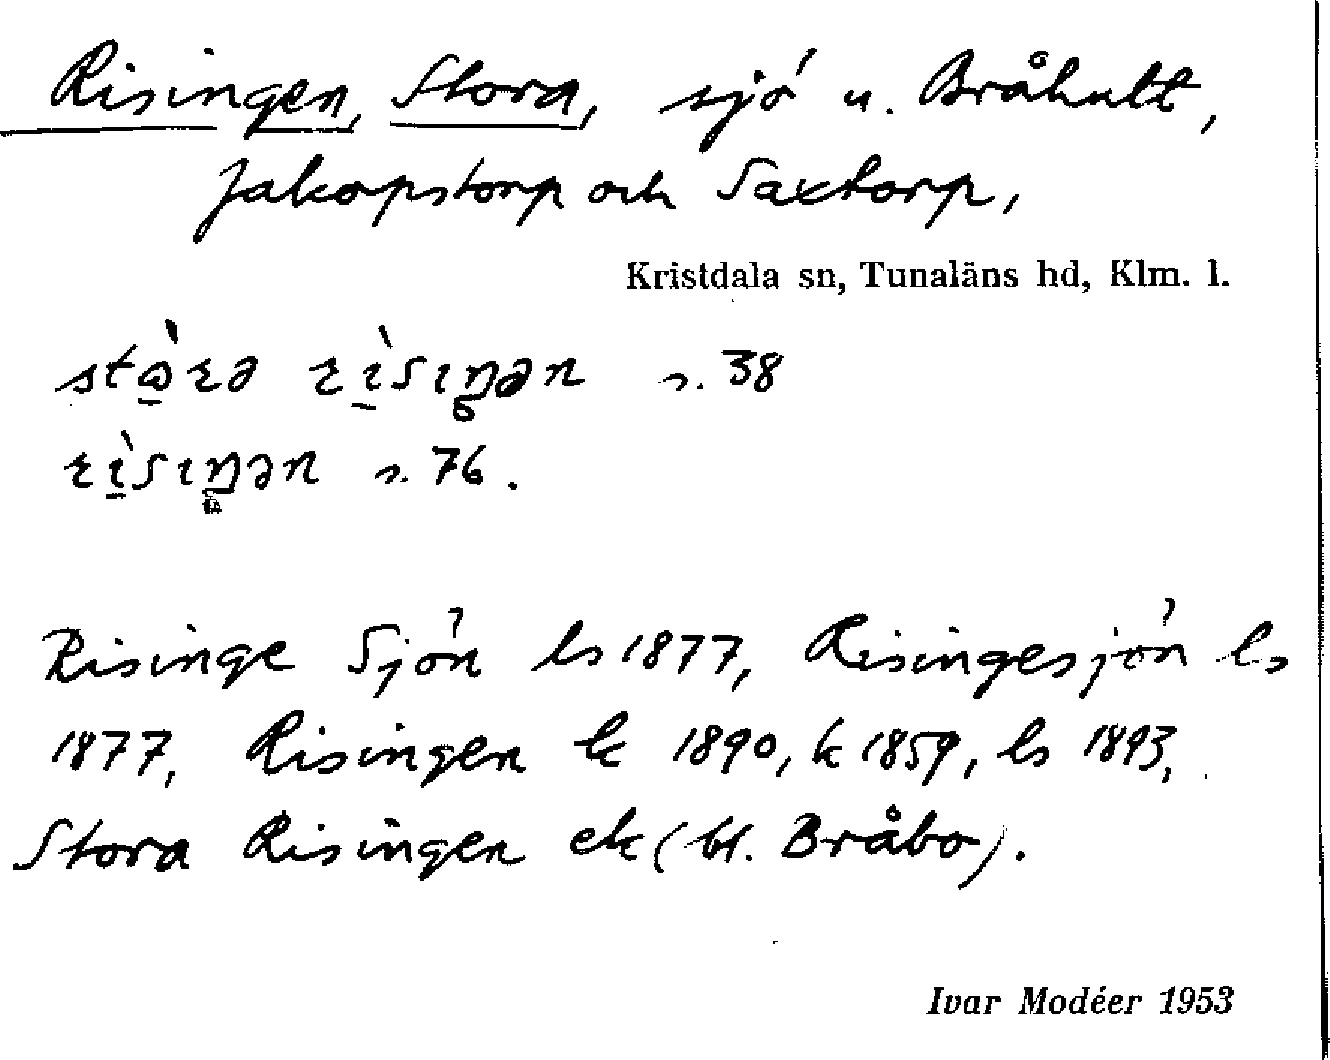 Risingen, Stora, sjö u. Bråhult,
Jakopstorp och Saxtorp,
Kristdala sn, Tunaläns hd, Klm. l.
s. 38
s. 76.
Risinge Sjön ls 1877, Risingesjön ls
1877, Risingen k 1890, k 1859, ls 1893,
Stora Risingen ek (bl. Bråbo).
Ivar Modéer 1953